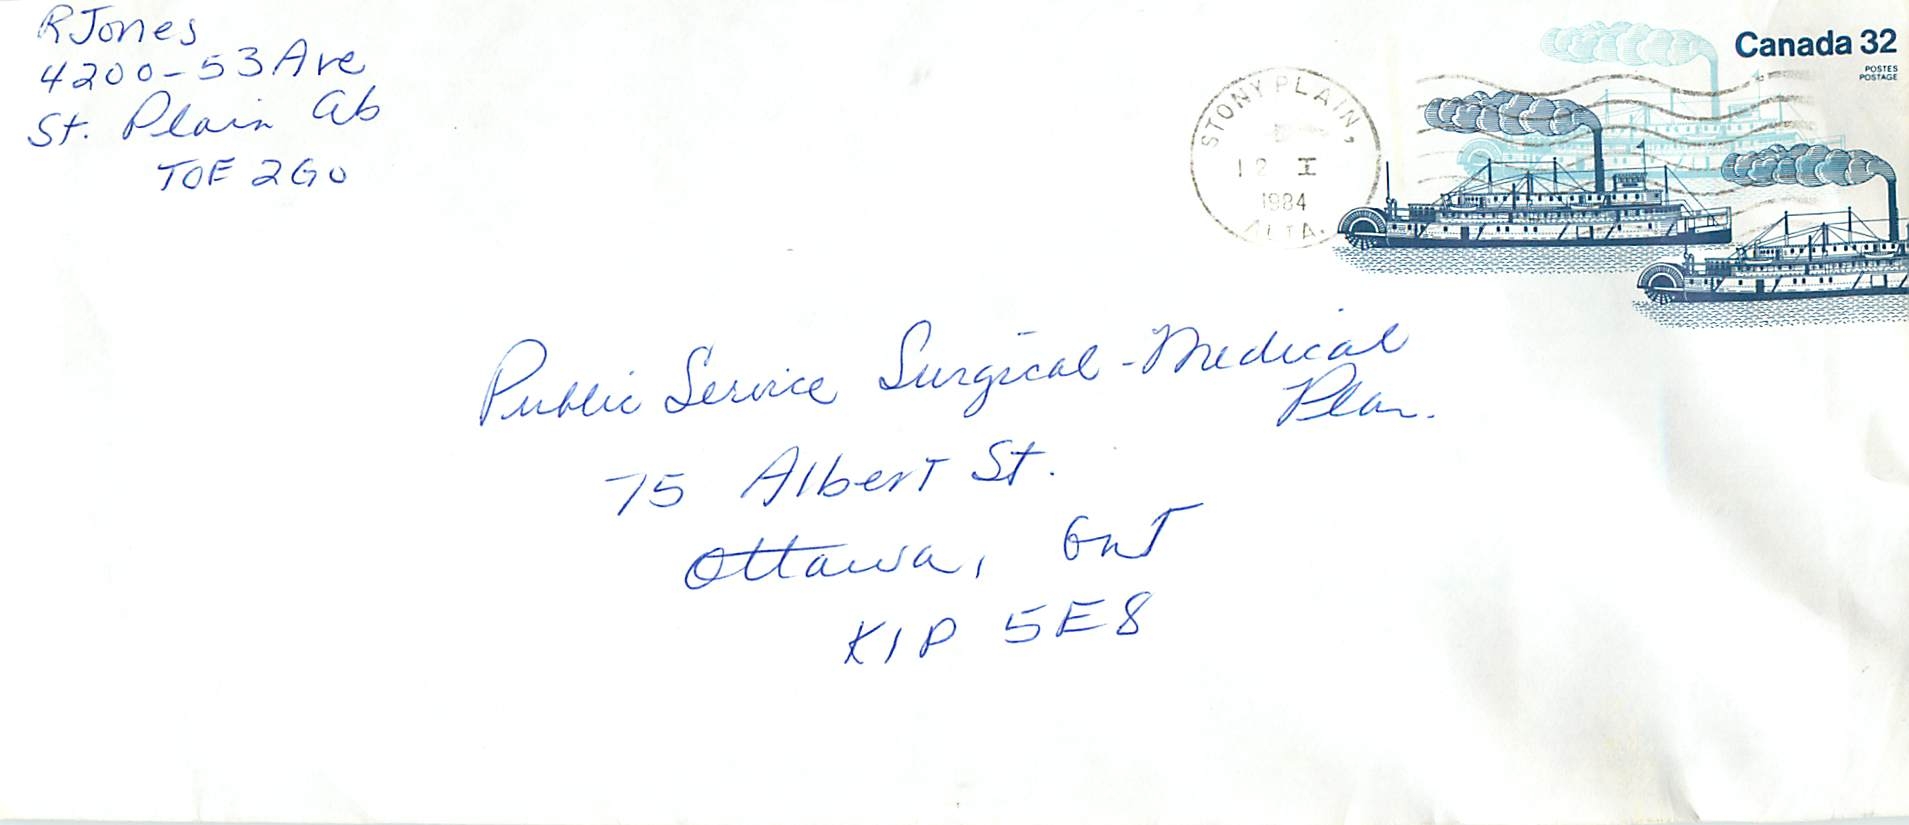 R Jones
4200-53 Ave
St. Plain Ab
T0E 2G0
Canada 32
POSTES
POSTAGE
STONY PLAIN,
12 I
1984
ALTA.
Public Service Surgical-Medical
Plan.
75 Albert St.
Ottawa, Ont
K1P 5E8